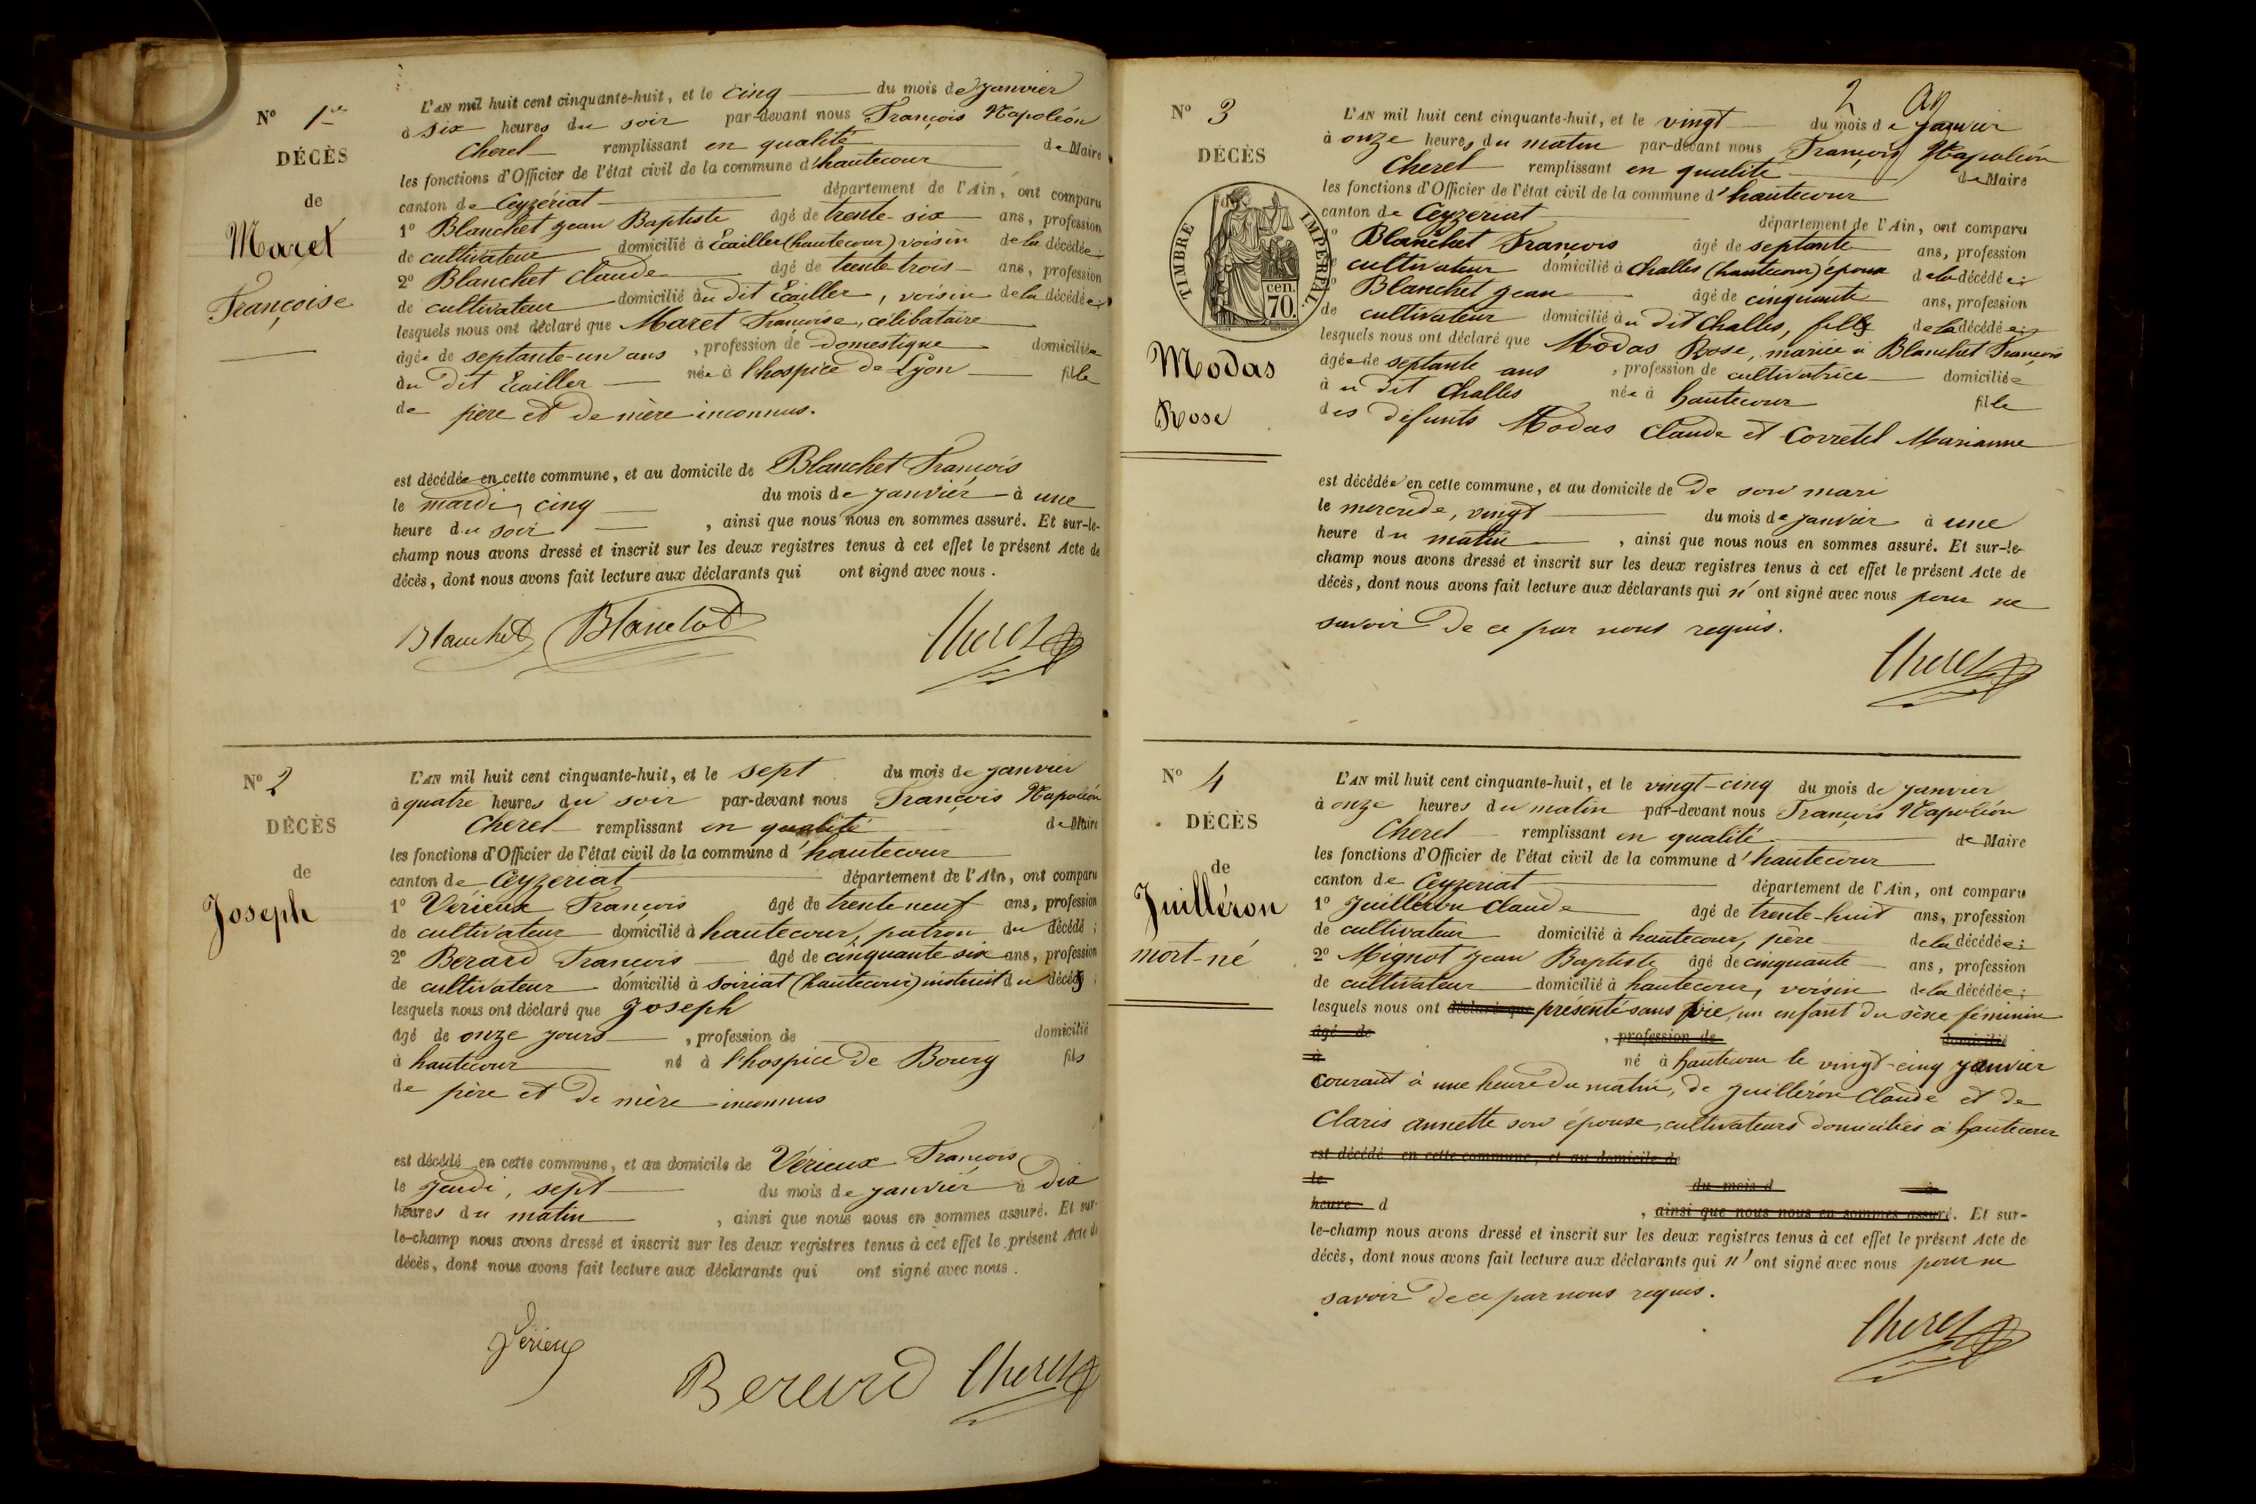 N° 1er
DÉCÈS
de
Maret
Françoise
L'AN mil huit cent cinquante-huit, et le cinq du mois de janvier
à six heures du soir par-devant nous François Napoléon
Cheret remplissant en qualité de Maire
les fonctions d'Officier de l'état civil de la commune d'hautecour
canton de Ceyzériat département de l'Ain, ont comparu
1° Blanchet Jean Baptiste âgé de trente-six ans, profession
de cultivateur domicilié à Ecailler (hautecour) voisin de la décédée;
2° Blanchet Claude âgé de trente-trois ans, profession
de cultivateur domicilié au dit Ecailler, voisin de la décédée;
lesquels nous ont déclaré que Maret Françoise, célibataire
âgée de septante-un ans, profession de domestique domiciliée
au dit Ecailler née à l'hospice de Lyon fille
de père et de mère inconnus.
est décédée en cette commune, et au domicile de Blanchet François
le mardi, cinq du mois de janvier à une
heure du soir, ainsi que nous nous en sommes assuré. Et sur-le-
champ nous avons dressé et inscrit sur les deux registres tenus à cet effet le présent Acte de
décès, dont nous avons fait lecture aux déclarants qui ont signé avec nous.
Blanchet Blanchet Cheret
N° 2
DÉCÈS
de
Joseph
L'AN mil huit cent cinquante-huit, et le sept du mois de janvier
à quatre heures du soir par-devant nous François Napoléon
Cheret remplissant en qualité de Maire
les fonctions d'Officier de l'état civil de la commune d'hautecour
canton de Ceyzeriat département de l'Ain, ont comparu
1° Vérieux François âgé de trente neuf ans, profession
de cultivateur domicilié à hautecour, patron du décédé;
2° Berard François âgé de cinquante-six ans, profession
de cultivateur domicilié à Soiriat (hautecour) instruit du décédé;
lesquels nous ont déclaré que Joseph
âgé de onze jours, profession de domicilié
à hautecour né à l'hospice de Bourg fils
de père et de mère inconnus
est décédé en cette commune, et au domicile de Vérieux François
le Jeudi, sept du mois de janvier à dix
heures du matin, ainsi que nous nous en sommes assuré. Et sur-
le-champ nous avons dressé et inscrit sur les deux registres tenus à cet effet le présent Acte de
décès, dont nous avons fait lecture aux déclarants qui ont signé avec nous.
Vérieux
Berard Cheret
2
N° 3
DÉCÈS
de
TIMBRE IMPÉRIAL
70 cen.
Modas
Rose
L'AN mil huit cent cinquante-huit, et le vingt du mois de janvier
à onze heures du matin par-devant nous François Napoléon
Cheret remplissant en qualité de Maire
les fonctions d'Officier de l'état civil de la commune d'hautecour
canton de Ceyzeriat département de l'Ain, ont comparu
1° Blanchet François âgé de septante ans, profession
de cultivateur domicilié à Challes (hautecour) époux de la décédée;
2° Blanchet Jean âgé de cinquante ans, profession
de cultivateur domicilié au dit Challes, fils de la décédée;
lesquels nous ont déclaré que Modas Rose, mariée à Blanchet François
âgée de septante ans, profession de cultivatrice domiciliée
à u dit Challes née à hautecour fille
des défunts Modas Claude et Corretel Marianne
est décédée en cette commune, et au domicile de de son mari
le mercredi, vingt du mois de janvier à une
heure du matin, ainsi que nous nous en sommes assuré. Et sur-le-
champ nous avons dressé et inscrit sur les deux registres tenus à cet effet le présent Acte de
décès, dont nous avons fait lecture aux déclarants qui n'ont signé avec nous pour ne
savoir de ce par nous requis.
Cheret
N° 4
DÉCÈS
de
Juilléron
mort-né
L'AN mil huit cent cinquante-huit, et le vingt-cinq du mois de janvier
à onze heures du matin par-devant nous François Napoléon
Cheret remplissant en qualité de Maire
les fonctions d'Officier de l'état civil de la commune d'hautecour
canton de Ceyzeriat département de l'Ain, ont comparu
1° Juilléron Claude âgé de trente-huit ans, profession
de cultivateur domicilié à hautecour, père de la décédée;
2° Mignot Jean Baptiste âgé de cinquante ans, profession
de cultivateur domicilié à hautecour, voisin de la décédée;
lesquels nous ont déclaré que présenté sans vie, un enfant du sèxe féminin
âgé de, profession de domicilié
à né à hautecour le vingt-cinq janvier
courant à une heure du matin, de Juilléron Claude et de
Claris annette son épouse, cultivateurs domiciliés à hautecour
est décédé en cette commune, et au domicile de
le du mois d à
heure d, ainsi que nous nous en sommes assuré. Et sur-
le-champ nous avons dressé et inscrit sur les deux registres tenus à cet effet le présent Acte de
décès, dont nous avons fait lecture aux déclarants qui n'ont signé avec nous pour ne
savoir de ce par nous requis.
Cheret